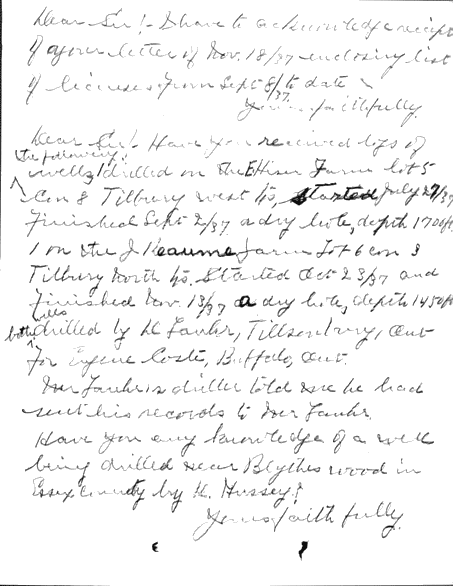 Dear Sir:- I have to acknowledge receipt
of your letter of Nov. 18/37 enclosing list
of licenses from Sept 8/37 to date
Yours faithfully.
Dear Sir:- Have you received logs of
the following
wells, 1 drilled on the Farm lot 5
Con 8 Tilbury West tp, started July 27/37
Finished Sept 2/37 a dry hole, depth 1700ft
1 on the J Reaume farm Lot 6 con 3
Tilbury North tp. Started Oct 23/37 and
finished Nov. 13/37 a dry hole, depth 1450ft
wells
both drilled by H Lauhr, Tillsonburg, Ont
for Eugene Coste, Buffalo, Ont.
Mr Lauhr's driller told me he had
sent his records to Mr Lauhr.
Have you any knowledge of a well
being drilled near Blytheswood in
Essex County by H. Hussey?
Yours faithfully.